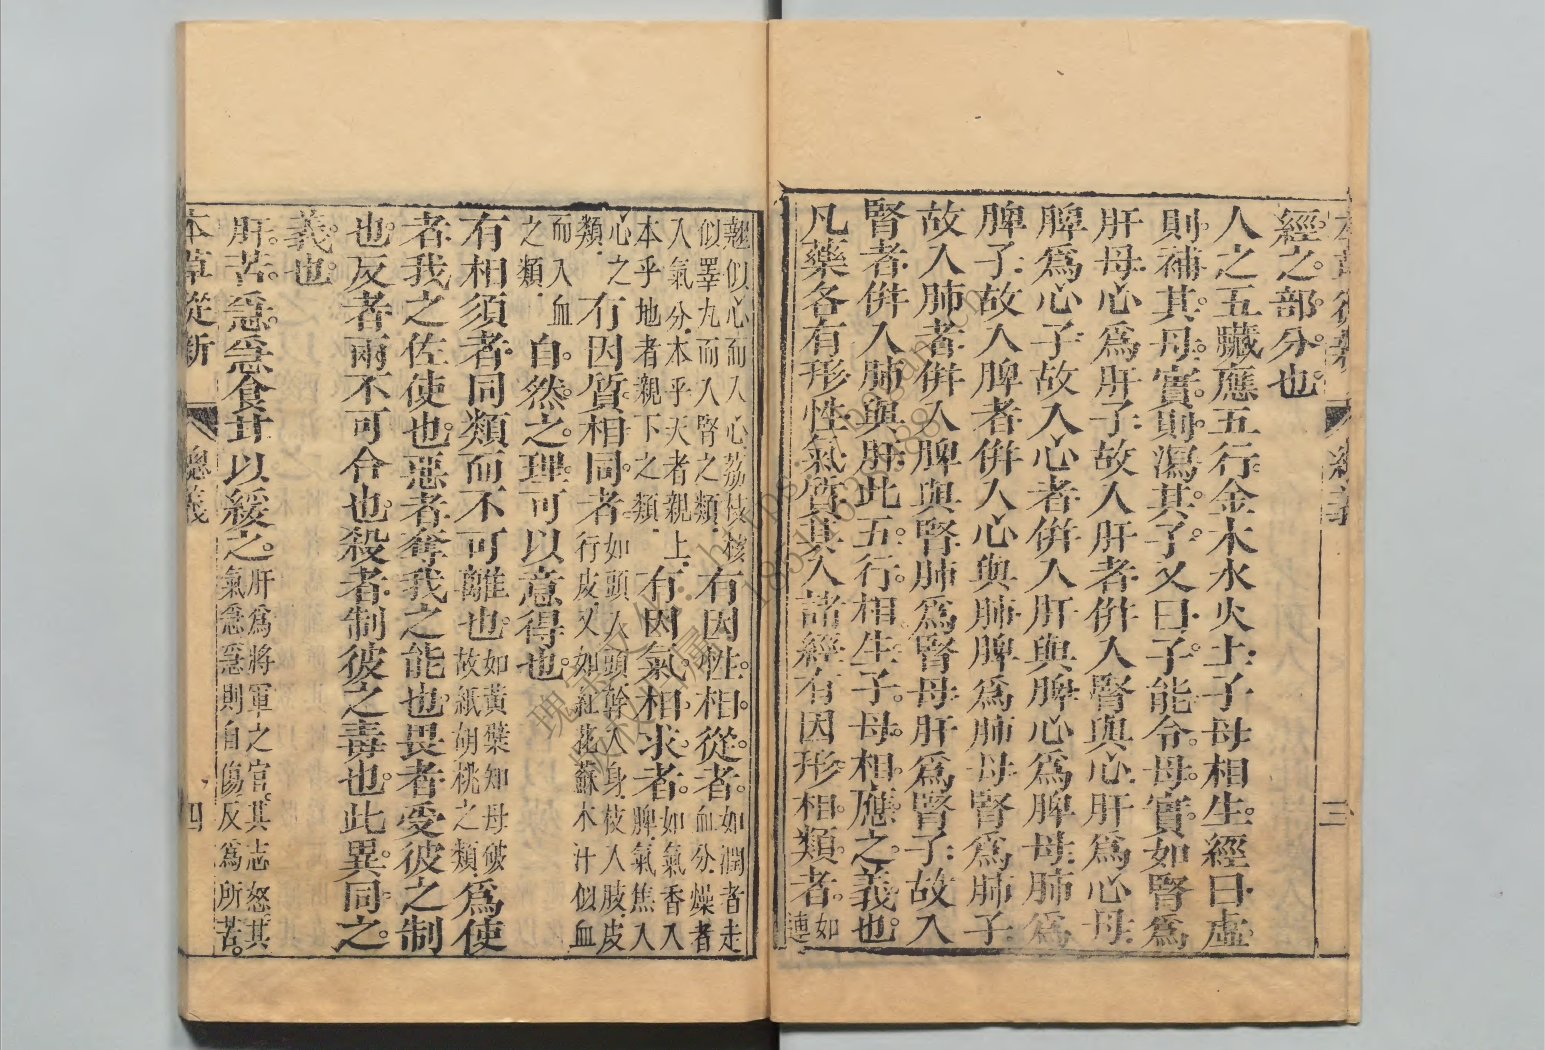 經之部分也
人之五臟應五行金木水火土子母相生經曰虛
則補其母實則瀉其子又曰子能令母實如腎爲
肝母心爲肝子故入肝者併入腎與心肝爲心母
脾爲心子故入心者併入肝與脾心爲脾母肺爲
脾子故入脾者併入心與肺脾爲肺母腎爲肺子
故入肺者併入脾與腎肺爲腎母肝爲腎子故入
腎者併入肺與肝此五行相生子母相應之義也
凡藥各有形性氣質其入諸經有因形相類者如連
翹似心而入心荔枝核似睪丸而入腎之類有因性相從者如潤者走血分燥者
入氣分本乎天者親上本乎地者親下之類有因氣相求者如氣香入脾氣焦入
心之類有因質相同者如頭入頭幹入身枝入肢皮行皮又如紅花蘇木汁似血
而入血之類自然之理可以意得也
有相須者同類而不可離也如黃蘗知母破故紙胡桃之類爲使
者我之佐使也惡者奪我之能也畏者受彼之制
也反者兩不可令也殺者制彼之毒也此異同之
義也
肝苦急急食甘以緩之肝爲將軍之官其志怒其氣急急則自傷反爲所苦
本草從新 總義 四
總義 三